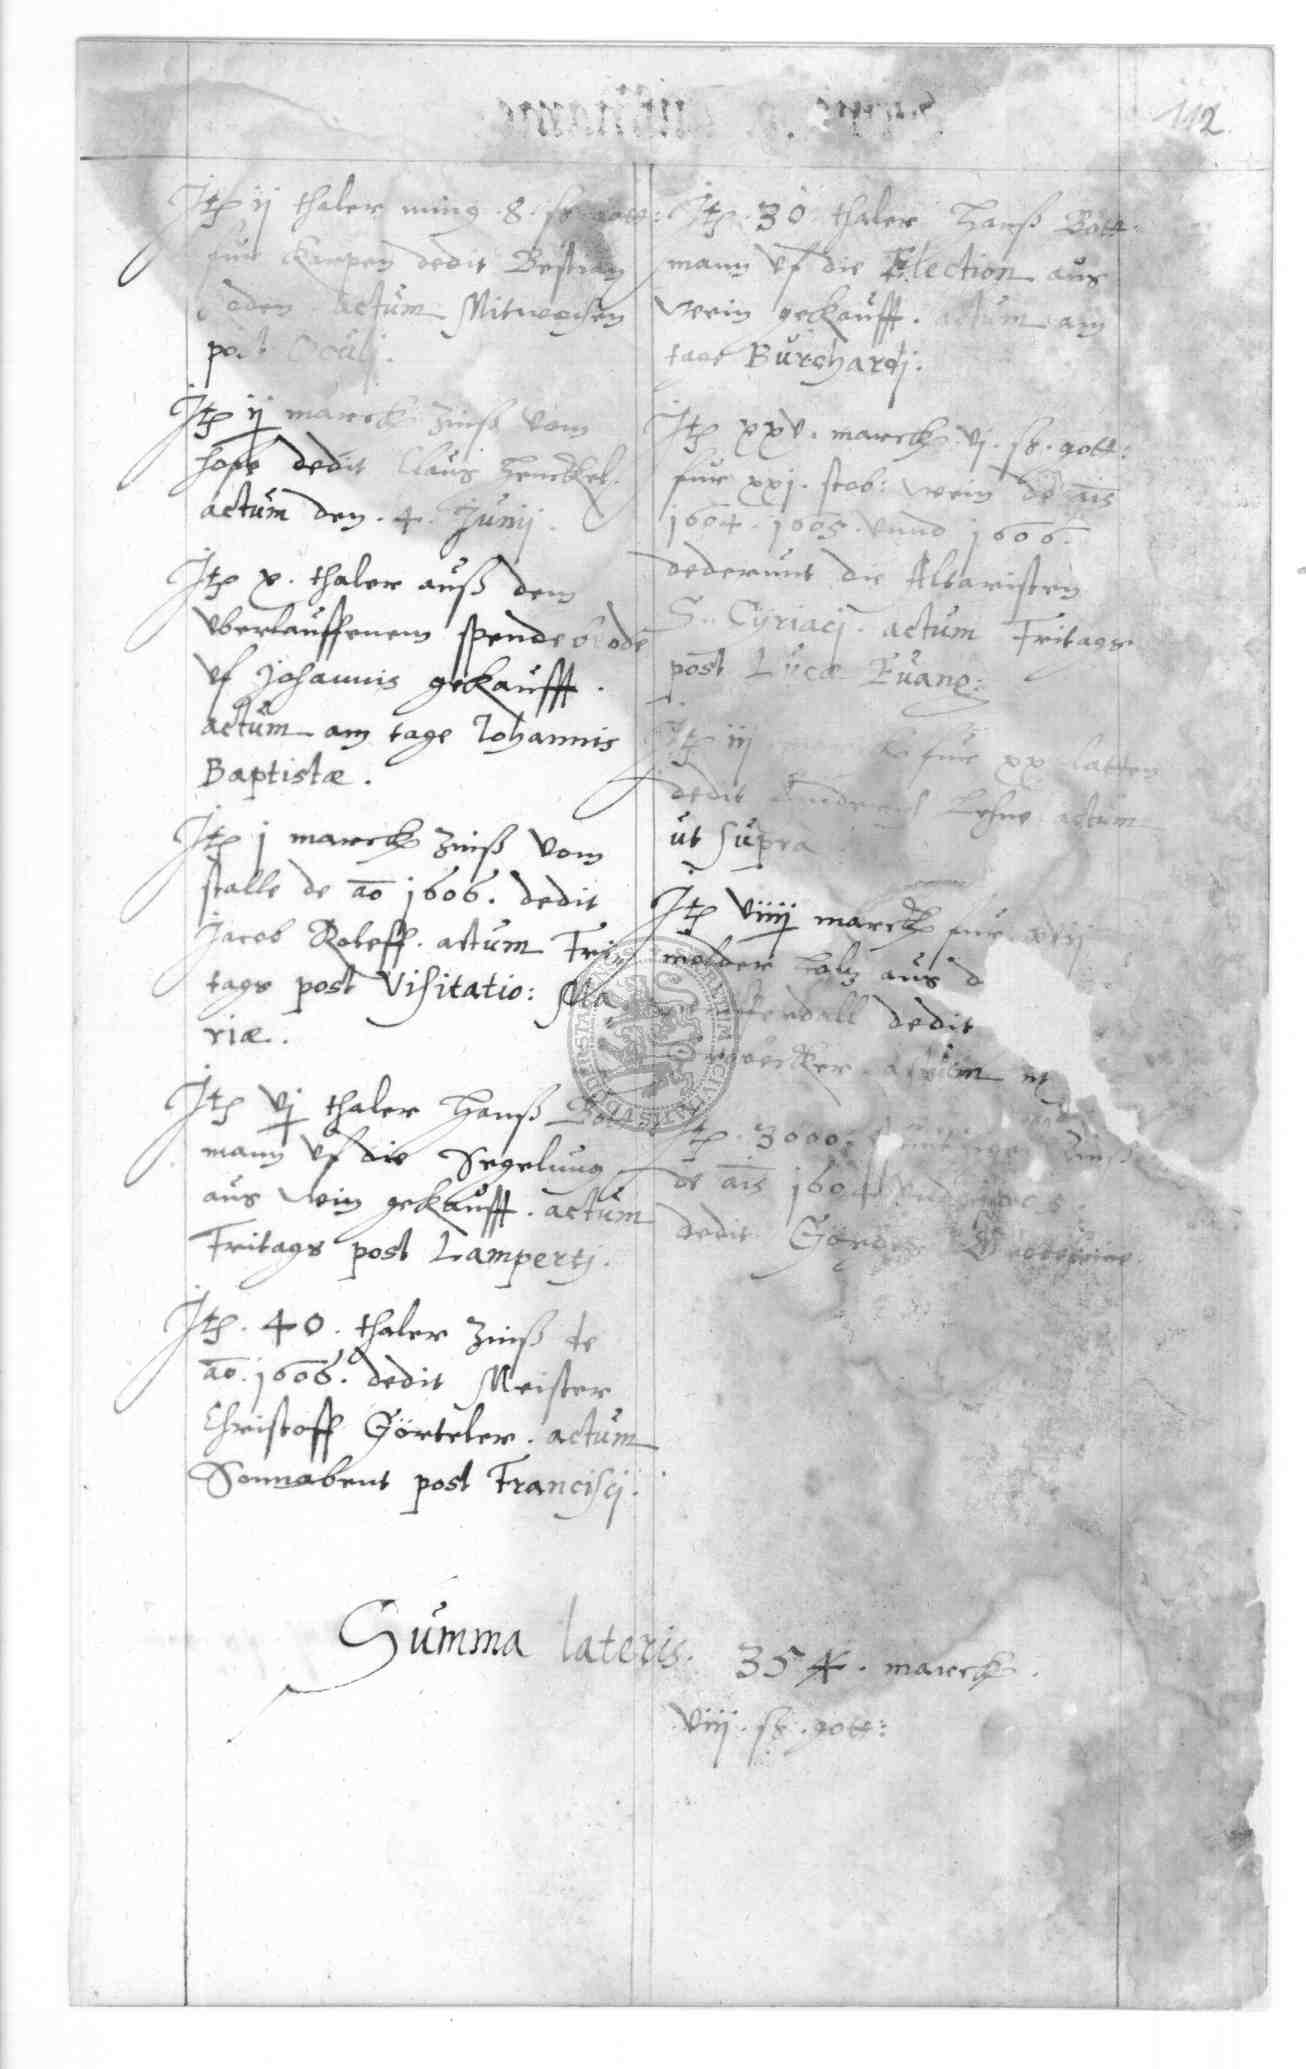 112.
Jtem ij thaler ming. 8. sk. gott:
fur karpen dedit Bestian
oden. actum Mitwochen
post Oculj.
Jtem ij marck zinß vom
hope dedit Claus Henckel.
actum den. 4. Junij.
Jtem x. thaler auß dem
vberlauffenem spendebrode
vf Johannis gekaufft.
actum am tage Iohannis
Baptistæ.
Jtem j marck zinß vom
stalle de ao 1606. dedit
Jacob Roleff. actum Fri
tags post Visitatio: Ma
riæ.
Jtem vj thaler Hanß Bott
mann vf die Segelung
aus wein gekaufft. actum
Fritags post Lampertj.
Jtem. 40. thaler zinß de
ao. 1606. dedit Meister
Christoff Görteler. actum
Sonnabent post Francisci.
Jtem. 30 thaler Hanß Bott
mann vf die Election aus
wein gekaufft. actum am
tage Burchardj.
Jtem xxv. marck. vj. sk. gott:
fur xxj. stob: wein de ais
1604. 1605. vnnd 1606.
dederunt die Altaristen
S. Cyriacj. actum Fritags
post Lucæ Euang:
Jtem iij marck fur xx latten
dedit Andreas Lehne actum
ut supra
Jtem viiij marck fur
molder kalg aus d
dall dedit
actum
Jtem. 3000. zinß
de ais 1604 vnd 1605.
dedit
Summa lateris. 354. marck.
viij. sk. gott: